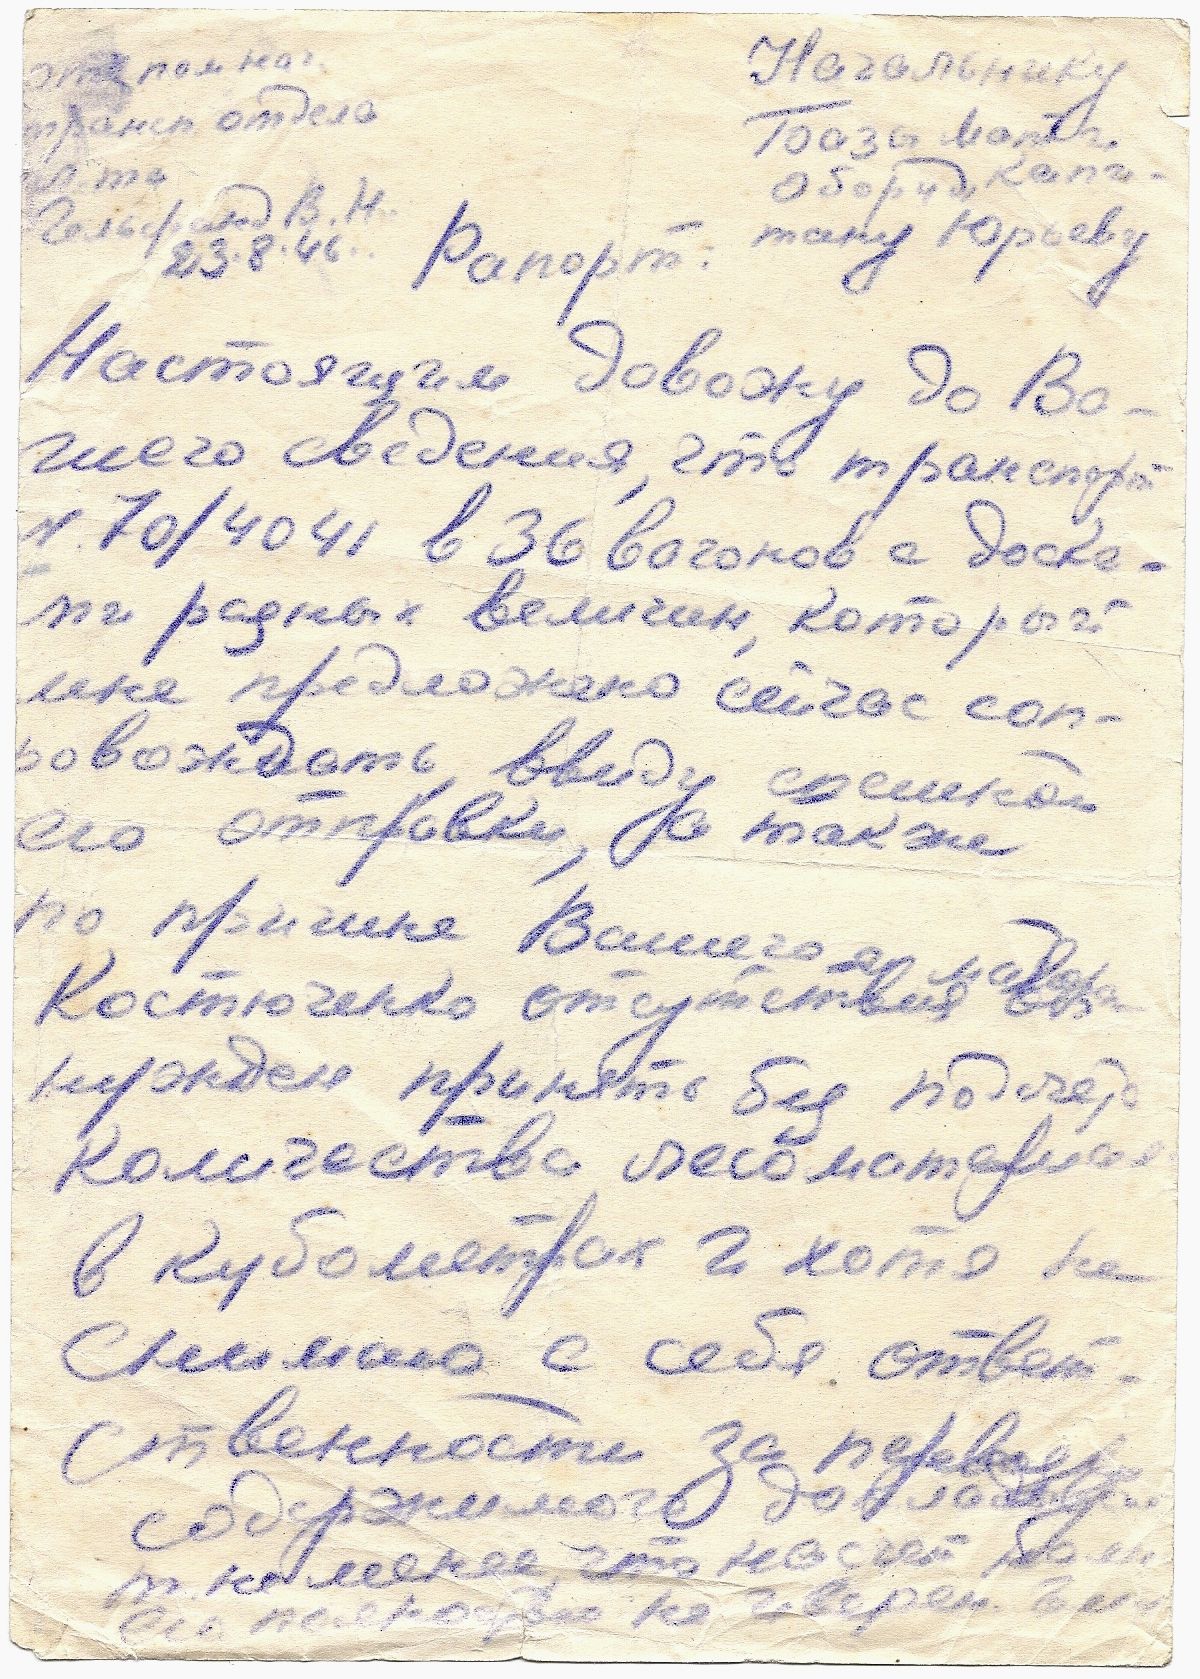 от пом нач.
трансп отдела
л-та
Гельфанд В. Н.
23.8.46.
Начальнику
Базы Мат. и
Оборуд Капи-
тану Юрьеву
Рапорт.
Настоящим довожу до Ва-
шего сведения, что транспорт
N. 70/4041 в 36 вагонов с доска-
ми разных величин, который
мне предложено сейчас соп-
ровождать, ввиду спешной
его отправки, а также
по причине Вашего и майора
Костюченко отсутствия вы-
нужден принять без подсчета
количества лесоматериал
в кубометрах И хотя не
снимаю с себя ответ-
ственности за перевозку
содержимого докладываю
т. не менее, что насчет
его полностью не уверен.